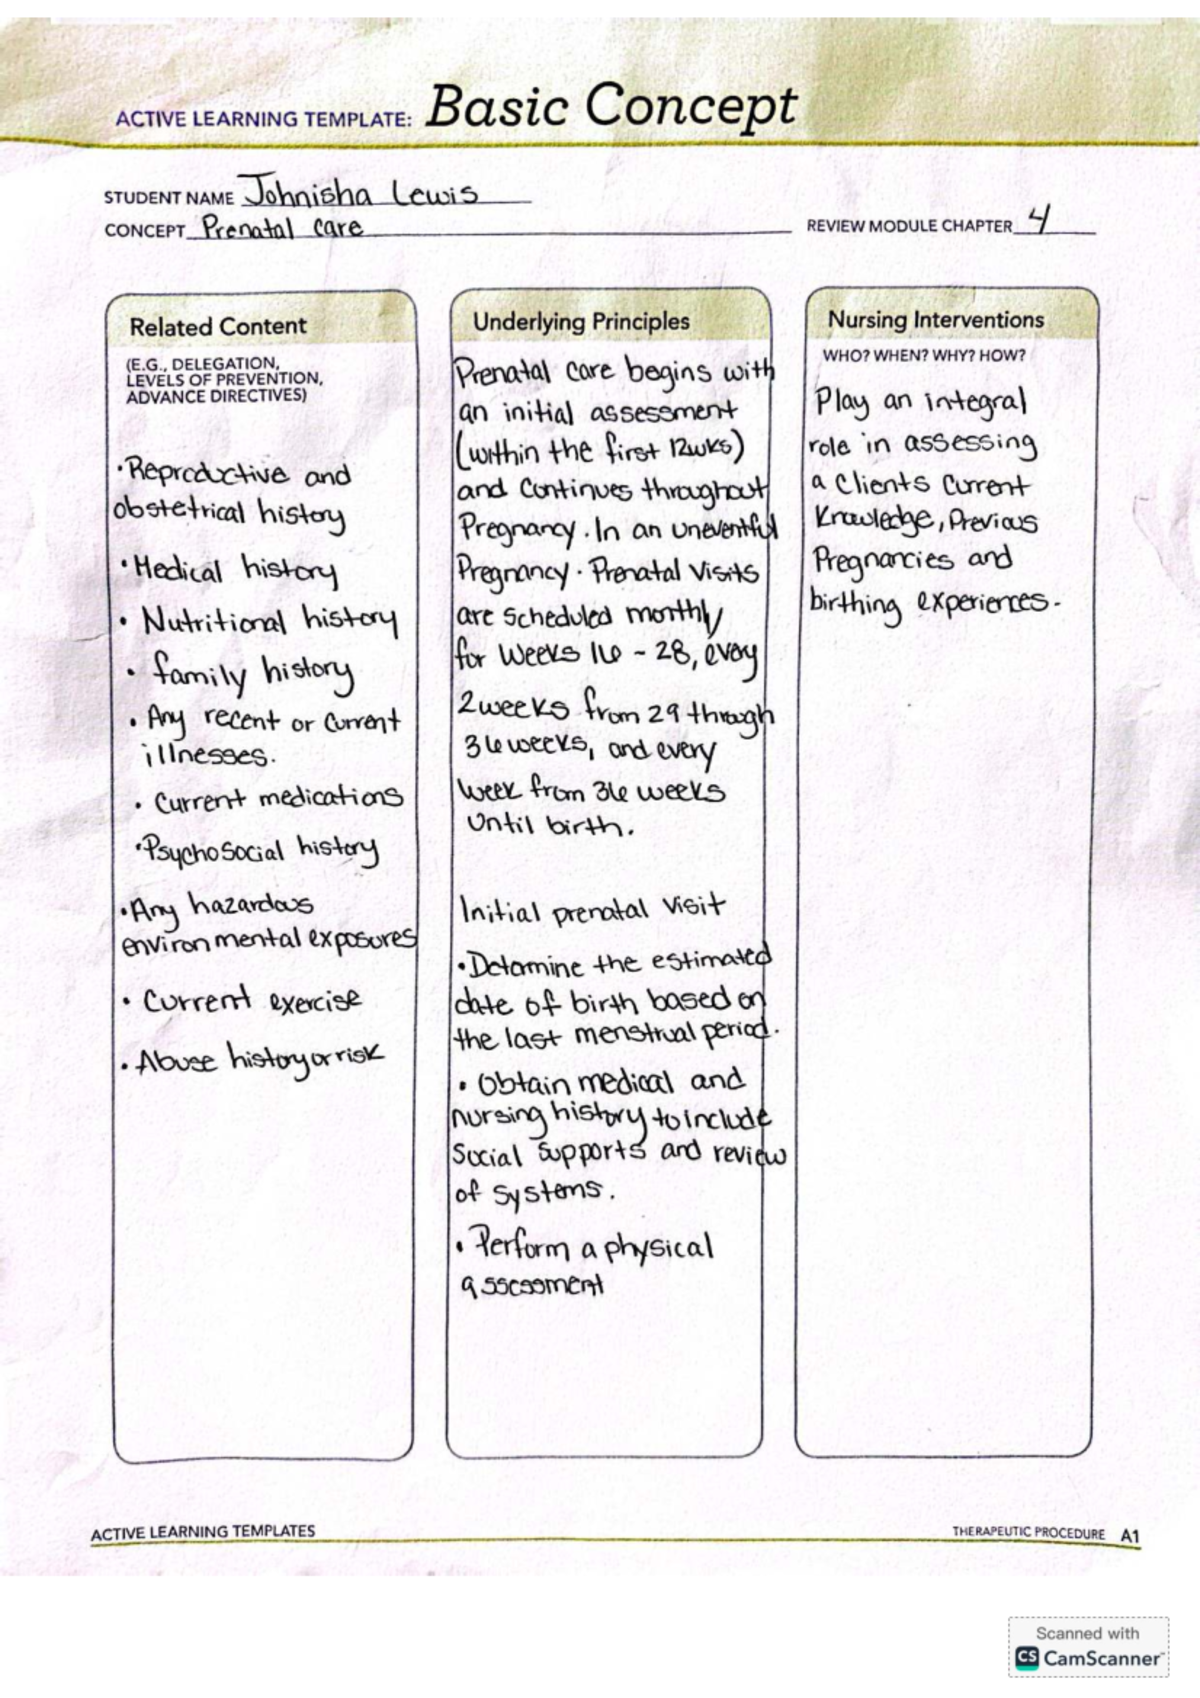 ACTIVE LEARNING TEMPLATE: Basic Concept
STUDENT NAME Johnisha Lewis
CONCEPT Prenatal care
REVIEW MODULE CHAPTER 4
Related Content
(E.G., DELEGATION,
LEVELS OF PREVENTION,
ADVANCE DIRECTIVES)
•Reproductive and
obstetrical history
•Medical history
• Nutritional history
• family history
• Any recent or current
illnesses.
• Current medications
•Psychosocial history
•Any hazardous
environmental exposures
• Current exercise
• Abuse history or risk
Underlying Principles
Prenatal care begins with
an initial assessment
(within the first 12wks)
and continues throughout
Pregnancy. In an uneventful
Pregnancy. Prenatal visits
are scheduled monthly
for weeks 16 - 28, every
2 weeks from 29 through
36 weeks, and every
week from 36 weeks
until birth.
Initial prenatal visit
•Determine the estimated
date of birth based on
the last menstrual period.
• Obtain medical and
nursing history to include
social supports and review
of systems.
• Perform a physical
assessment
Nursing Interventions
WHO? WHEN? WHY? HOW?
Play an integral
role in assessing
a clients current
Knowledge, Previous
Pregnancies and
birthing experiences.
ACTIVE LEARNING TEMPLATES
THERAPEUTIC PROCEDURE A1
Scanned with
CS CamScanner